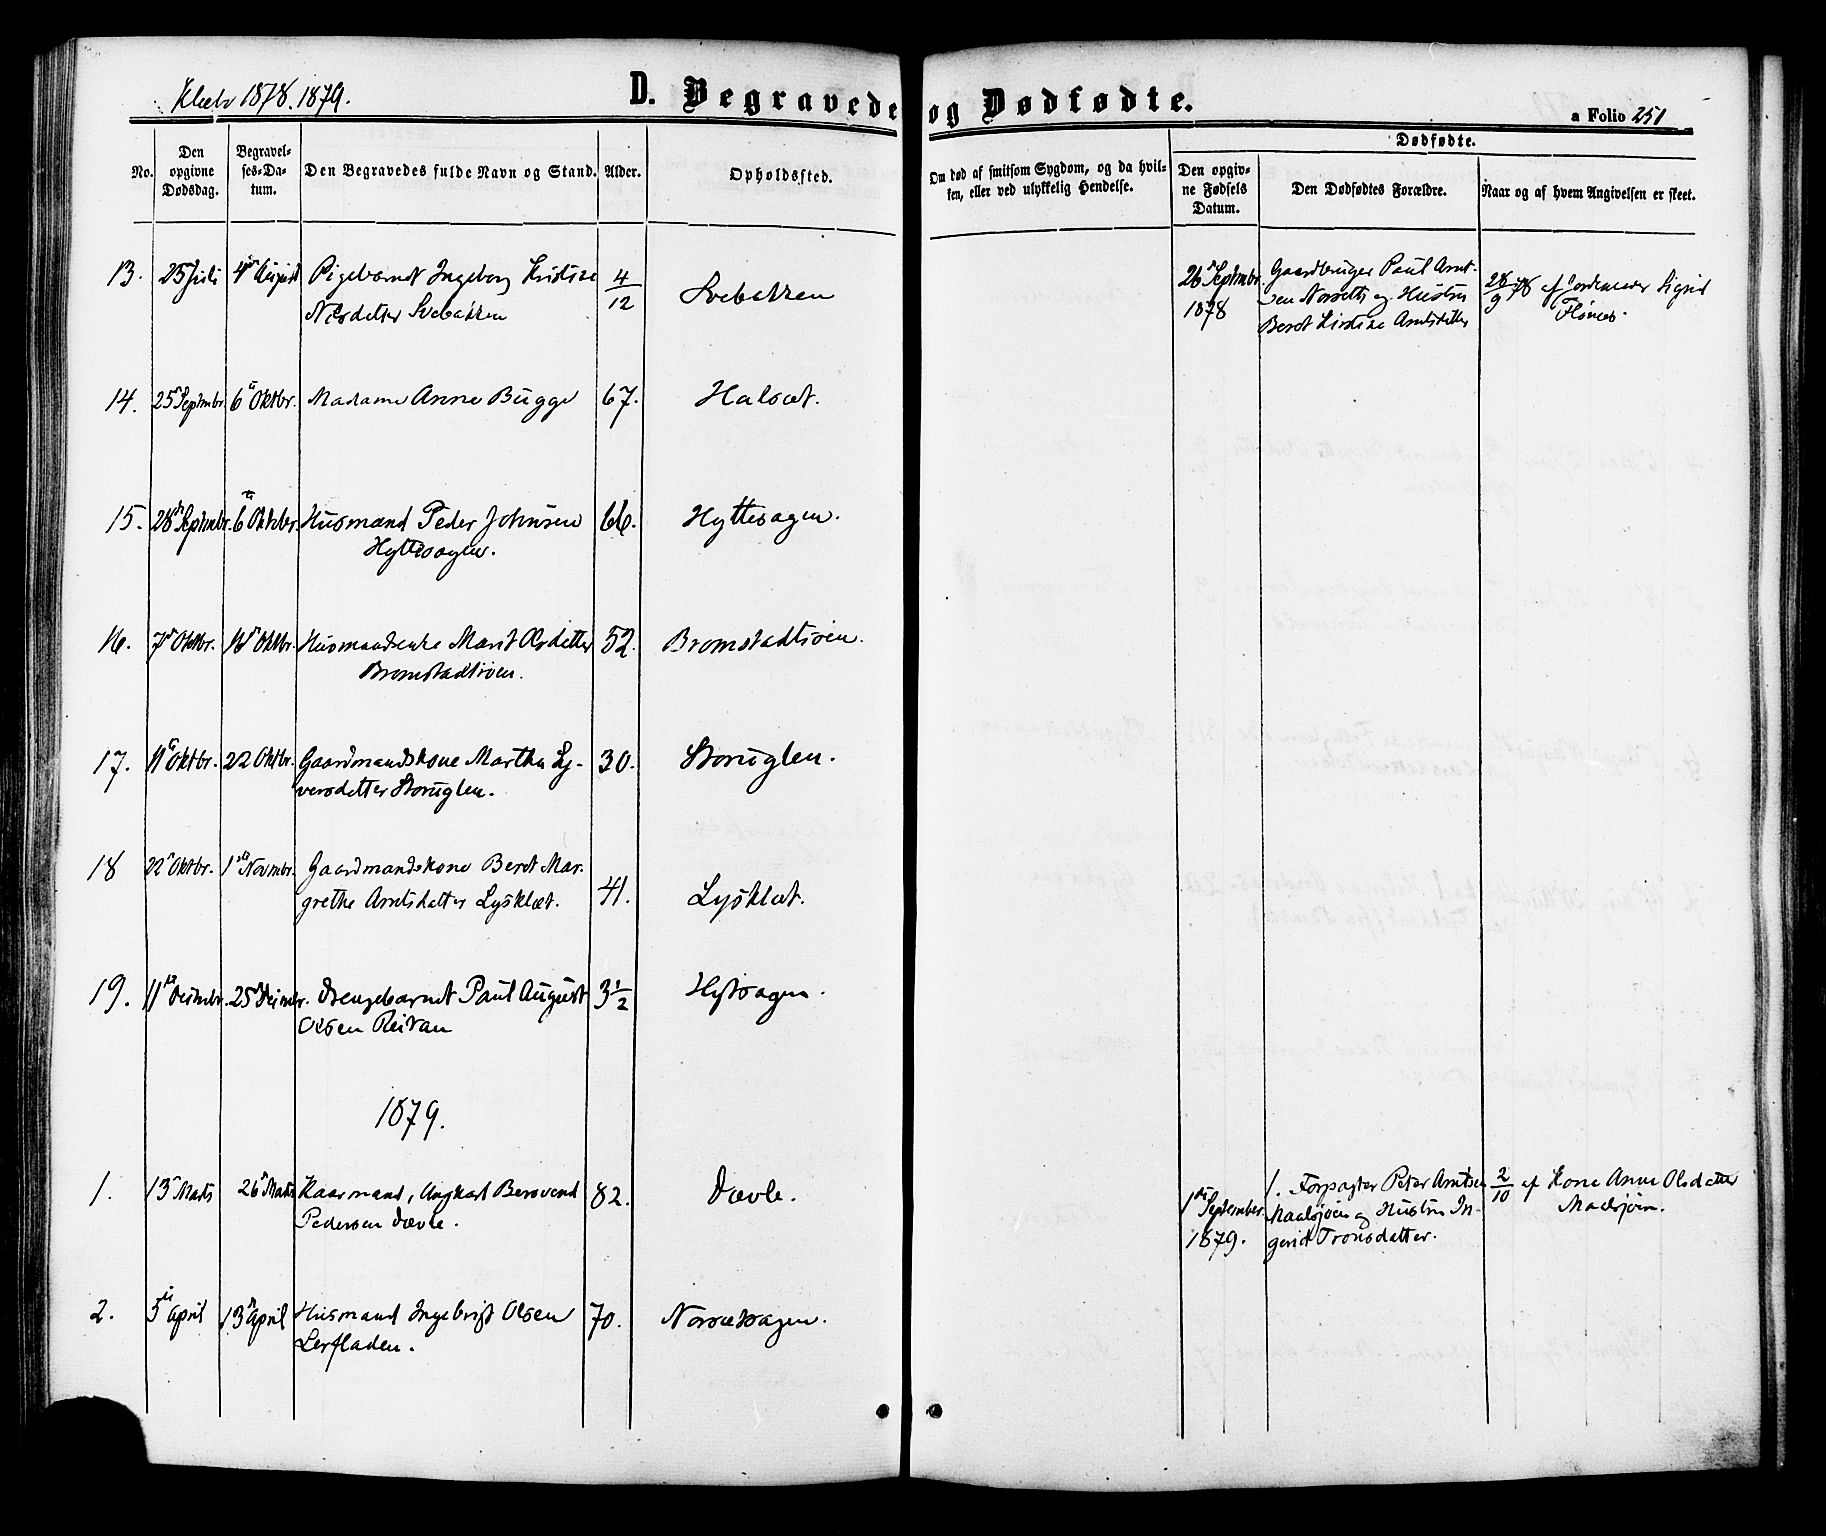 Klæbo 1878. 1879.
D. Begravede og Dødfødte.
a Folio 251
No.
Den opgivne Dødsdag.
Begravelses-Datum.
Den Begravedes fulde Navn og Stand.
Alder.
Opholdssted.
Om død af smitsom Sygdom, og da hvilken, eller ved ulykkelig Hendelse.
Dødfødte.
Den opgivne Fødsels Datum.
Den Dødfødtes Forældre.
Naar og af hvem Angivelsen er skeet.
13. 25 Juli 4de August Pigebarnet Ingeborg Kristine 4/12 Svebakken
Nilsdetter Svebakken
26de Septmbr. 1878
Gaardbruger Paul Arnt-
sen Norseth og Hustru
Beret Kirstine Arntsdatter
28/9 78 af Jordemoder Sigrid
Flønes.
14. 25 Septmbr. 6te Oktbr. Madame Anne Bugge 67. Halsæt.
15. 28de Septmbr. 6te Oktober. Husmand Peder Johnsen 66. Hyttesagen.
Hyttesagen.
16. 7de Oktbr. Oktbr. Husmandsenke Marit Olsdetter 52. Bromstadtrøen.
Bromstadtrøen.
17. 11te Oktbr. 22 Oktbr. Gaardmandskone Martha Sy- 30. Storuglen.
versdetter Storuglen.
18 22de Oktbr. 1ste Novmbr. Gaardmandskone Beret Mar-
grethe Arntsdatter Lysklæt. 41. Lysklæt.
19. 11te Desmbr. 25de Desmbr. Drengebarnet Paul August 3 1/2 Hytsagen.
Olsen Reitan
1879.
1. 13de Marts 26de Marts Kaarmand, Ungkarl Bersvend 82. Dævle.
Pedersen Dævle.
1ste September 1879.
1. Forpagter Peter Arntsen
Maalsjøen og Hustru In-
gerid Tronsdatter.
2/10 af Kone Anne Olsdatter
Maalsjøen.
2. 5te April 13de April Husmand Ingebrigt Olsen 70.
Lerfladen.